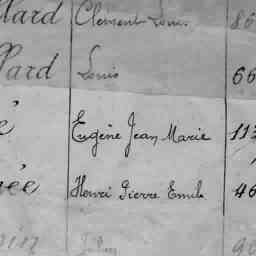 llard Clement Louis 86
llard Louis 66
é Eugène Jean Marie 113
née Henri Pierre Emile 46